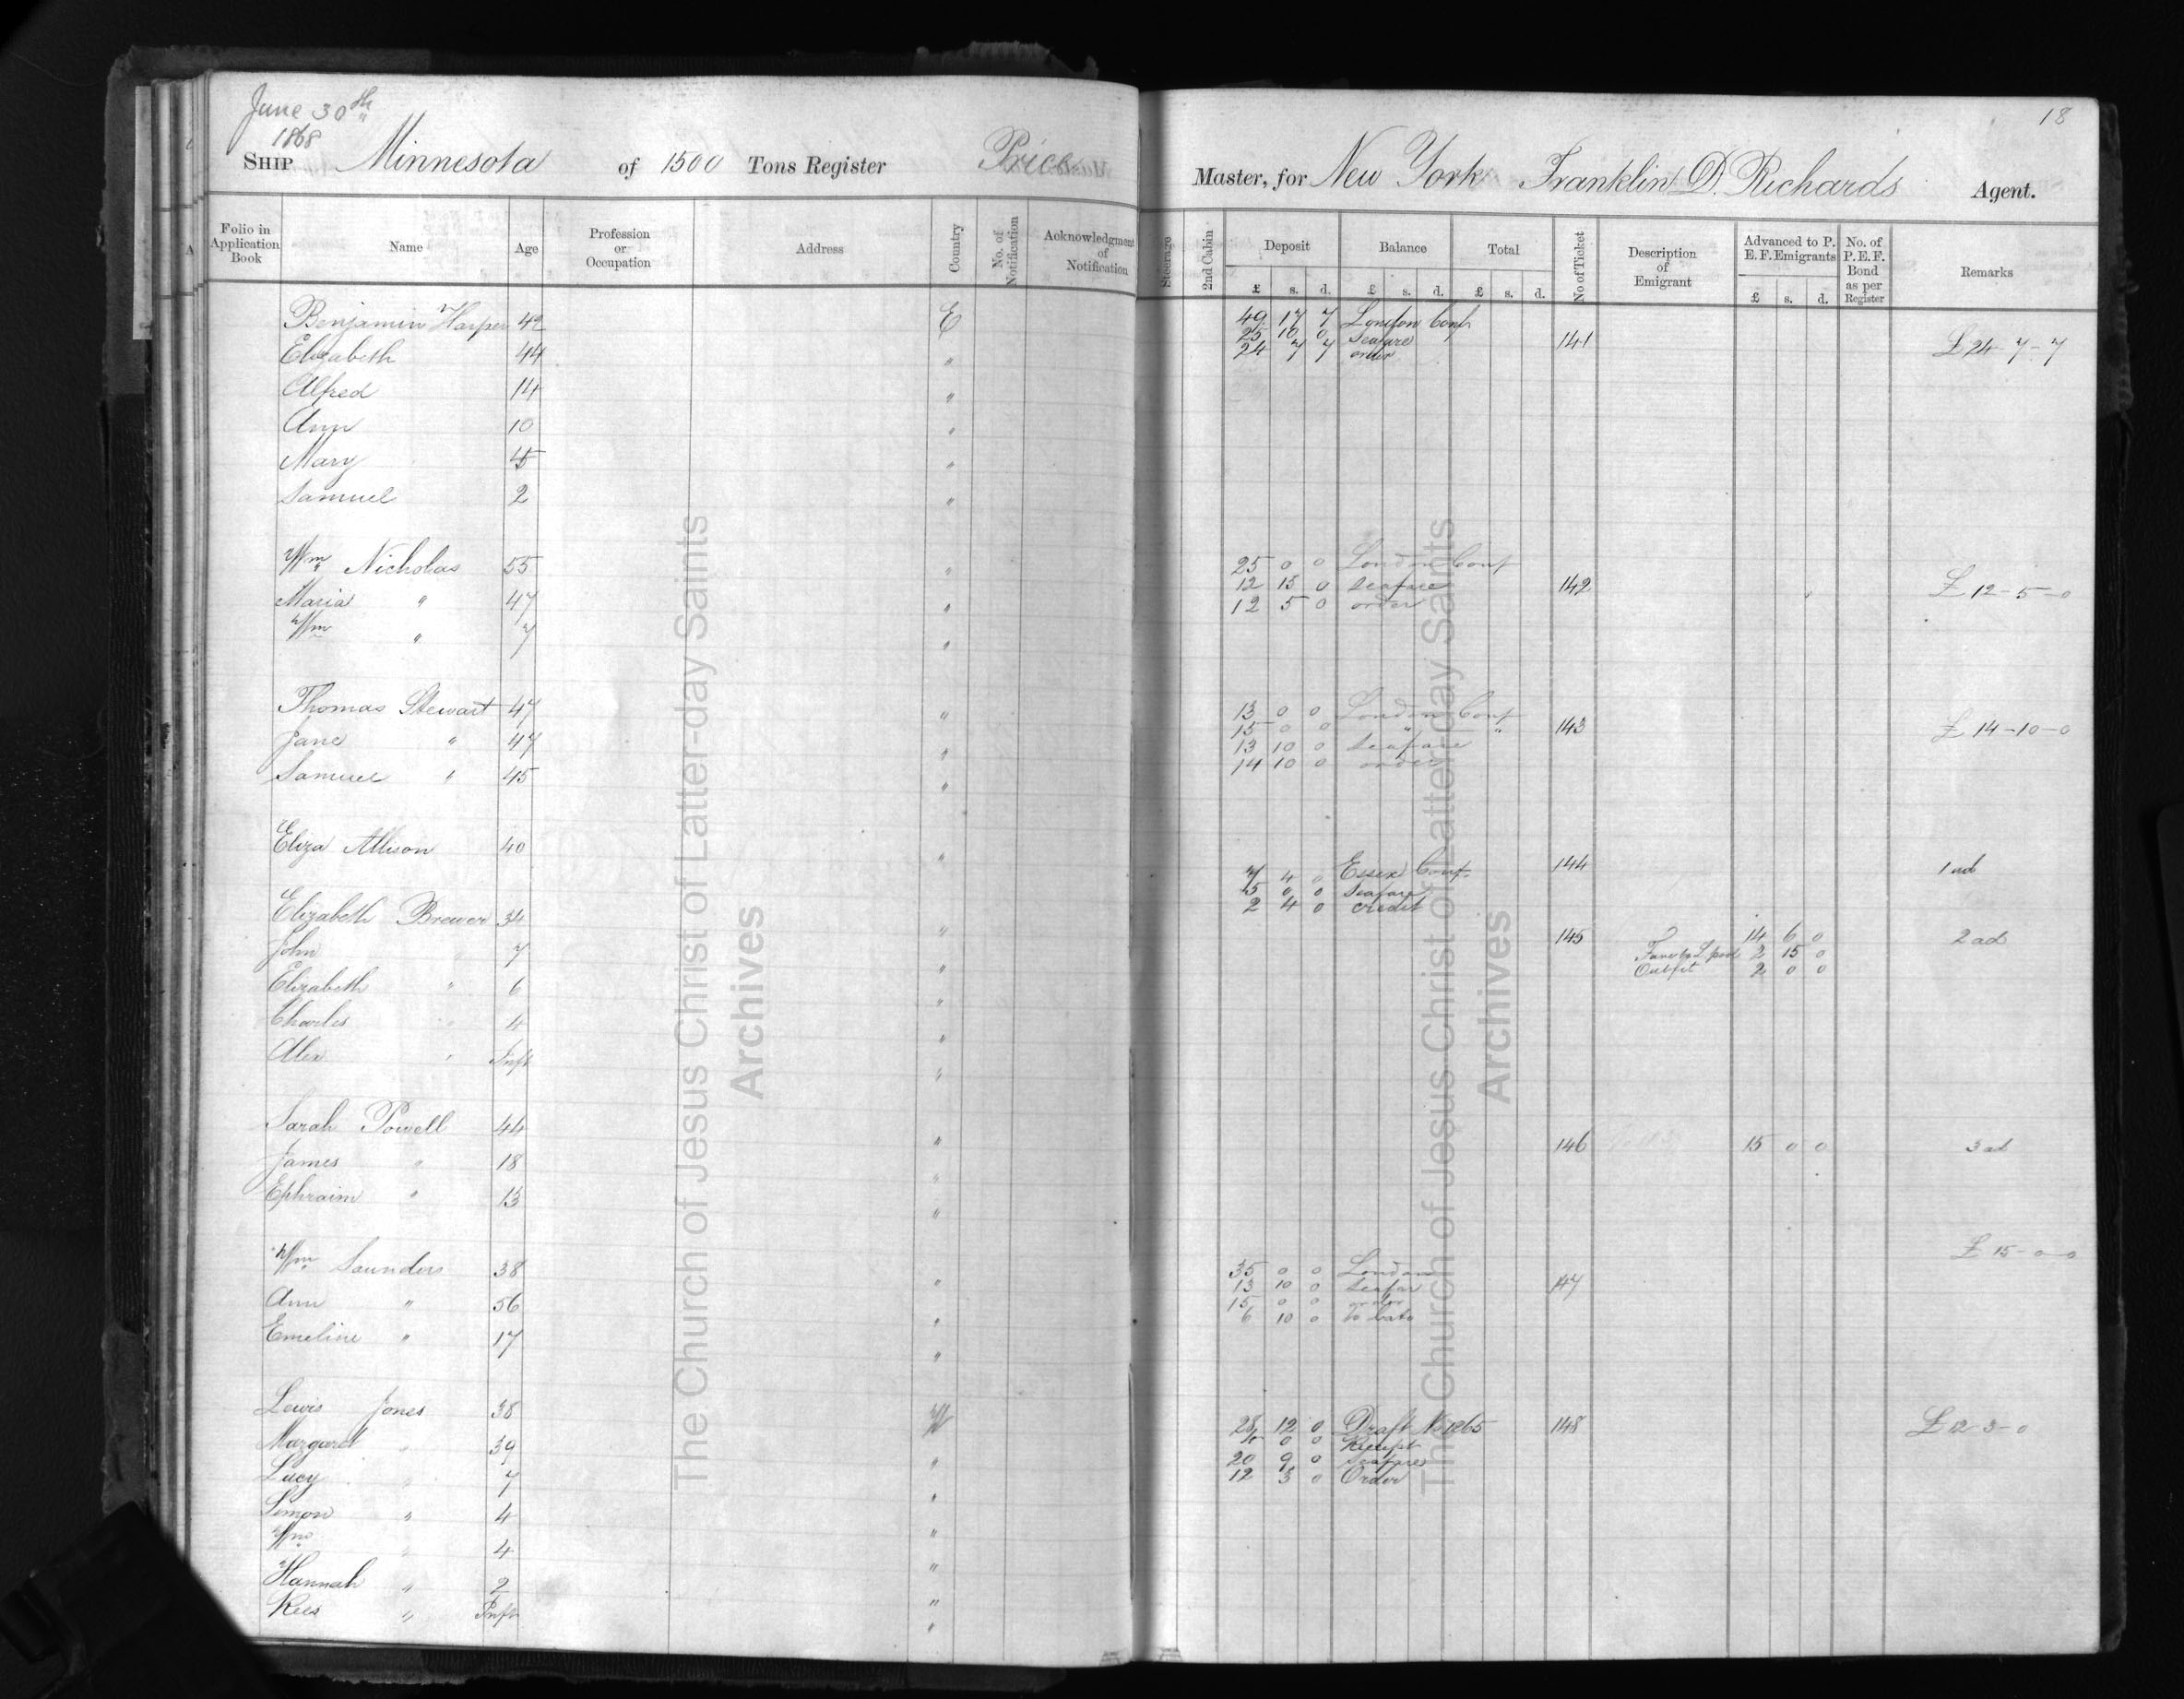 June 30th 1868
18
SHIP Minnesota of 1500 Tons Register Price Master, for New York Franklin D. Richards Agent.
Folio in Application Book | Name | Age | Profession or Occupation | Address | Country | No. of Notification | Acknowledgment of Notification | Steerage | 2nd Cabin | Deposit £ s. d. | Balance £ s. d. | Total £ s. d. | No of Ticket | Description of Emigrant | Advanced to P. E. F. Emigrants £ s. d. | No. of P.E.F. Bond as per Register | Remarks
Benjamin Harper 42 E 49 17 7 London Conf
25 10 0 Seafare 141 £24-7-7
Elizabeth 44 " 24 7 7 order
Alfred 14 "
Ann 10 "
Mary "
Samuel 2 "
Wm Nicholas 55 " 25 0 0 London Conf
12 15 0 Seafare 142 £12-5-0
Maria " 47 " 12 5 0 order
Wm " 7 "
Thomas Stewart 47 " 13 0 0 London Conf
15 0 0 " " 143 £14-10-0
Jane " 47 " 13 10 0 Seafare
14 10 0 order
Samuel " 45 "
Eliza Allison 40 " 144 1 ad
7 4 0 Essex Conf.
5 0 0 Seafare
2 4 0 credit
Elizabeth Brewer 34 " 145 14 6 0 2 ad
John " 7 " Fare to L.pool 2 15 0
Outfit 2 0 0
Elizabeth " 6 "
Charles " 4 "
Alex " Inft "
Sarah Powell 44 " 146 15 0 0 3 ad
James " 18 "
Ephraim " 13 "
£15-0-0
Wm Saunders 38 " 35 0 0 London
13 10 0 Seafar 147
Ann " 56 " 15 0 0 order
6 10 0
Emeline " 17 "
Lewis Jones 38 W 28 12 0 Draft No 1265 148 £12-3-0
0 0 Receipt
Margaret " 39 " 20 9 0 Seafare
Lucy " 7 " 12 3 0 Order
Simon " 4 "
Wm " 4 "
Hannah " 2 "
Rees " Inft "
The Church of Jesus Christ of Latter-day Saints
Archives
The Church of Jesus Christ of Latter-day Saints
Archives